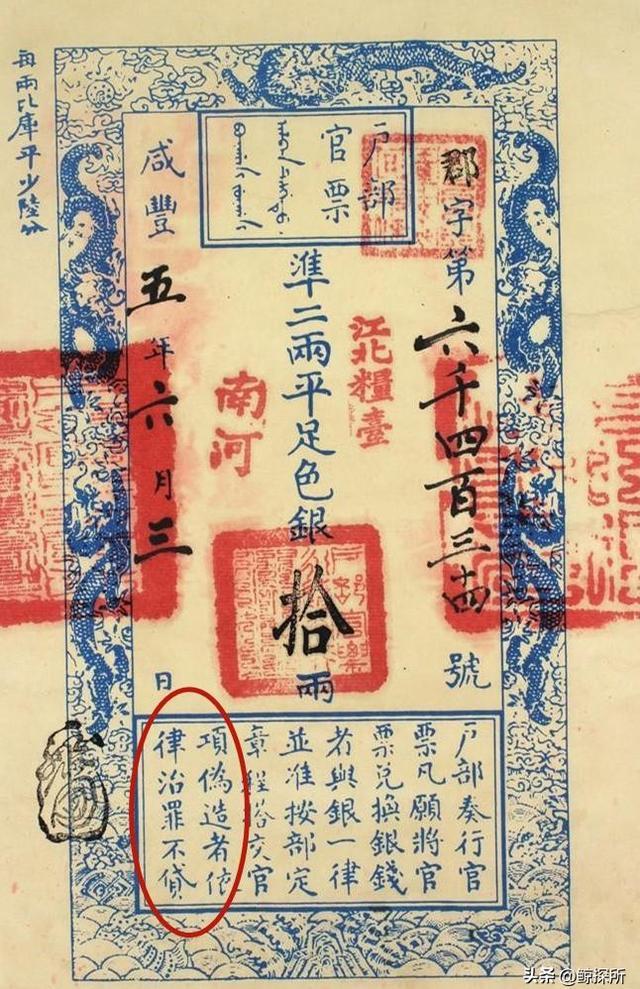 戶部
官票
郡字第六千四百三十四號
江北糧臺
準二兩平足色銀拾兩
南河
咸豐五年六月三日
每兩比庫平少陸分
戶部奏行官
票凡願將官
票兌換銀錢
者與銀一律
並准按部定
章程搭交官
項偽造者依
律治罪不貸
头条 @鲸探所